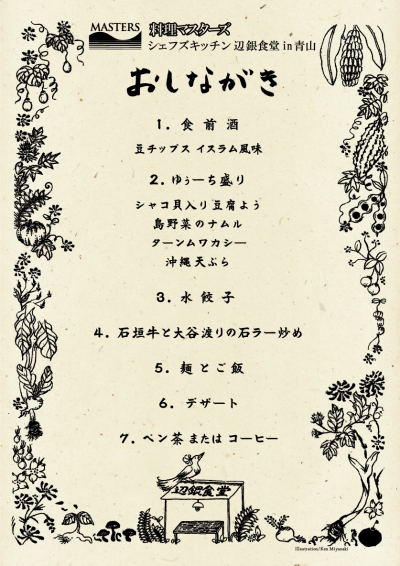 MASTERS
料理マスターズ
シェフズキッチン 辺銀食堂 in 青山
おしながき
1. 食前酒
豆チップス イスラム風味
2. ゆぅーち盛り
シャコ貝入り豆腐よう
島野菜のナムル
ターンムワカシー
沖縄天ぷら
3. 水餃子
4. 石垣牛と大谷渡りの石ラー炒め
5. 麺とご飯
6. デザート
7. ペン茶 または コーヒー
辺銀食堂
Illustration/Ken Miyazaki